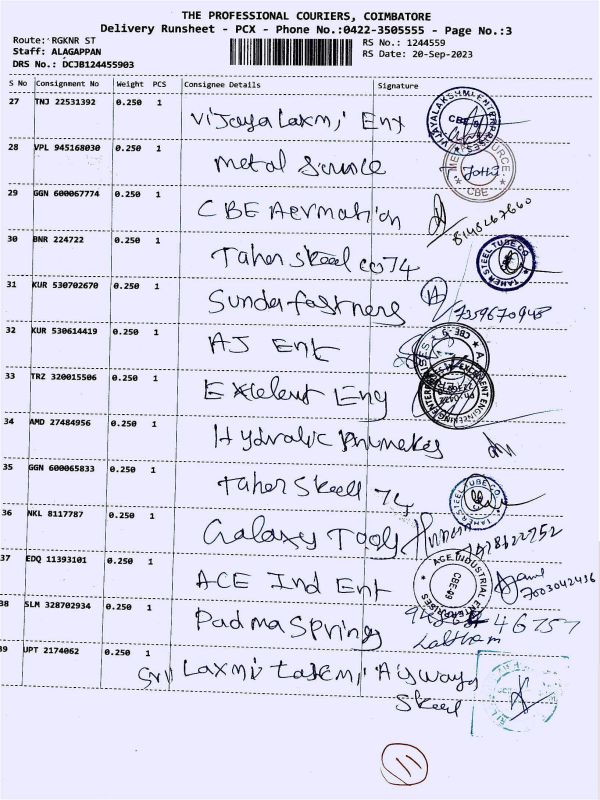 THE PROFESSIONAL COURIERS, COIMBATORE
Delivery Runsheet - PCX - Phone No.:0422-3505555 - Page No.:3
Route: RGKNR ST
Staff: ALAGAPPAN
DRS No.: DCJB124455903
RS No.: 1244559
RS Date: 20-Sep-2023
S No Consignment No Weight PCS Consignee Details Signature
27 TNJ 22531392 0.250 1 Vijaya Laxmi Ent
VIJAYALAKSHMI ENTERPRISES CBE-9
28 VPL 945168030 0.250 1 Metal Source
CBE
29 GGN 600067774 0.250 1 CBE Aermation
8148267660
30 BNR 224722 0.250 1 Taher Skeel co 74
TAHER STEEL TUBE CO.
31 KUR 530702670 0.250 1 Sunder fastners
7359670948
32 KUR 530614419 0.250 1 AJ Ent
CBE-9
33 TRZ 320015506 0.250 1 Exelent Eng
34 AMD 27484956 0.250 1 Hydralic
35 GGN 600065833 0.250 1 Taher Skeell 74
TAHER STEEL TUBE CO.
36 NKL 8117787 0.250 1 Galaxy Tools
37 EDQ 11393101 0.250 1 ACE Ind Ent
ACE INDUSTRIAL ENTERPRISES CBE-09
7003042436
38 SLM 328702934 0.250 1 Padma Springs
46757
39 UPT 2174062 0.250 1 Sri Laxmi
Skeel
11